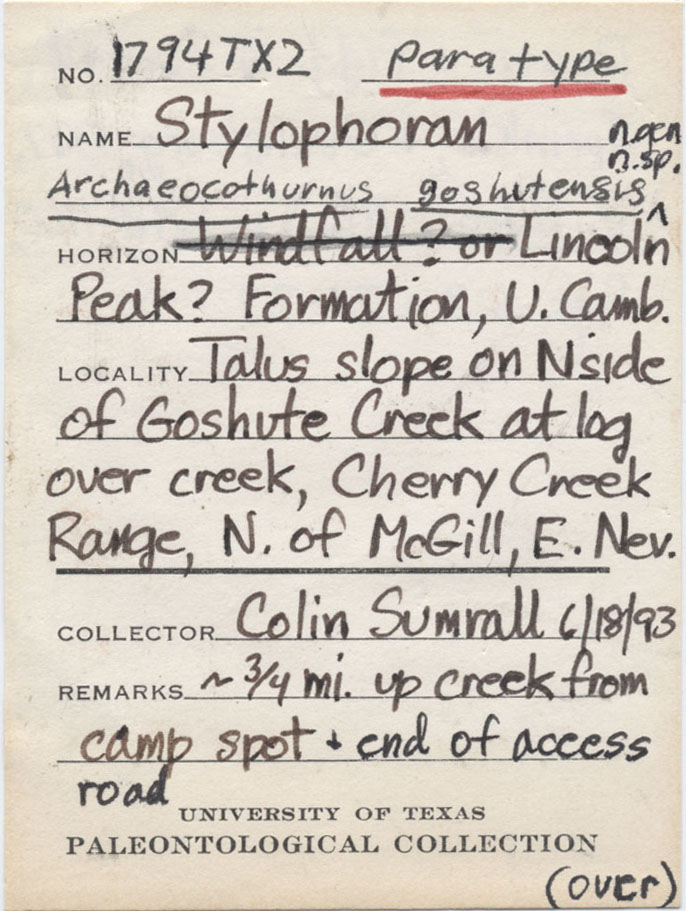 NO. 1794TX2 paratype
NAME Stylophoran n.gen
n.sp.
Archaeocothurnus goshutensis ^
HORIZON Windfall? or Lincoln
Peak? Formation, U. Camb.
LOCALITY Talus slope on N side
of Goshute Creek at log
over creek, Cherry Creek
Range, N. of McGill, E. Nev.
COLLECTOR Colin Sumrall 6/18/93
REMARKS ~ 3/4 mi. up creek from
camp spot + end of access
road
UNIVERSITY OF TEXAS
PALEONTOLOGICAL COLLECTION
(over)